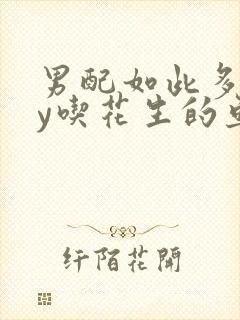 男配如此多
y喫花生的
纤陌花開